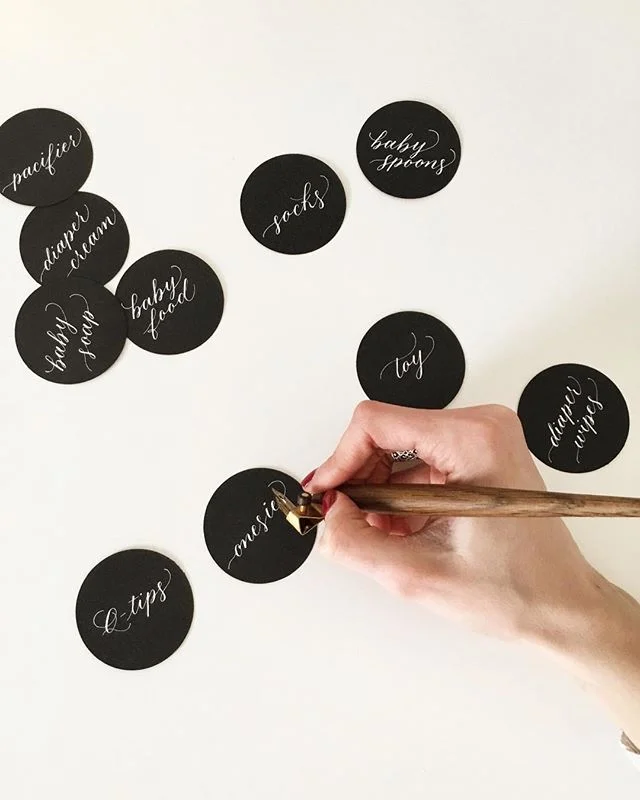 pacifier
baby
spoons
socks
diaper
cream
baby
food
baby
soap
toy
diaper
wipes
onesie
Q-tips